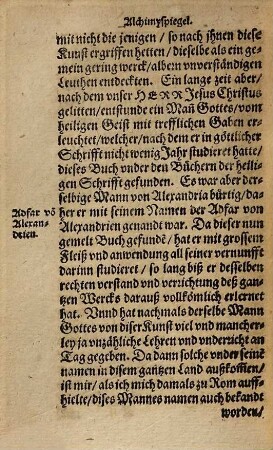 Alchimyspiegel.
mit nicht die jenigen / so nach jhnen diese
Kunst ergriffen hetten / dieselbe als ein ge-
mein gering werck / albern vnverständigen
Leuthen entdeckten. Ein lange zeit aber /
nach dem vnser HERR Jesus Christus
gelitten / entstunde ein Mañ Gottes / vom
heiligen Geist mit trefflichen Gaben er-
leuchtet / welcher / nach dem er in göttlicher
Schrifft nicht wenig Jahr studieret hatte /
dieses Buch vnder den Büchern der heili-
gen Schrifft gefunden. Es war aber der-
selbige Mann von Alexandria bürtig / da-
Adfar võ
Alexan-
drien.
her er mit seinem Namen der Adfar von
Alexandrien genandt war. Da dieser nun
gemelt Buch gefundē / hat er mit grossem
Fleiß vnd anwendung all seiner vernunfft
darinn studieret / so lang biß er desselben
rechten verstand vnd verrichtung deß gan-
tzen Wercks darauß vollkömlich erlernet
hat. Vnnd hat nachmals derselbe Mann
Gottes von diser Kunst viel vnd mancher-
ley ja vnzähliche Lehren vnd vnderricht an
Tag gegeben. Da dann solche vnder seinē
namen in disem gantzen Land außkom̃en /
ist mir / als ich mich damals zu Rom auff-
hielte / dises Mannes namen auch bekandt
worden /